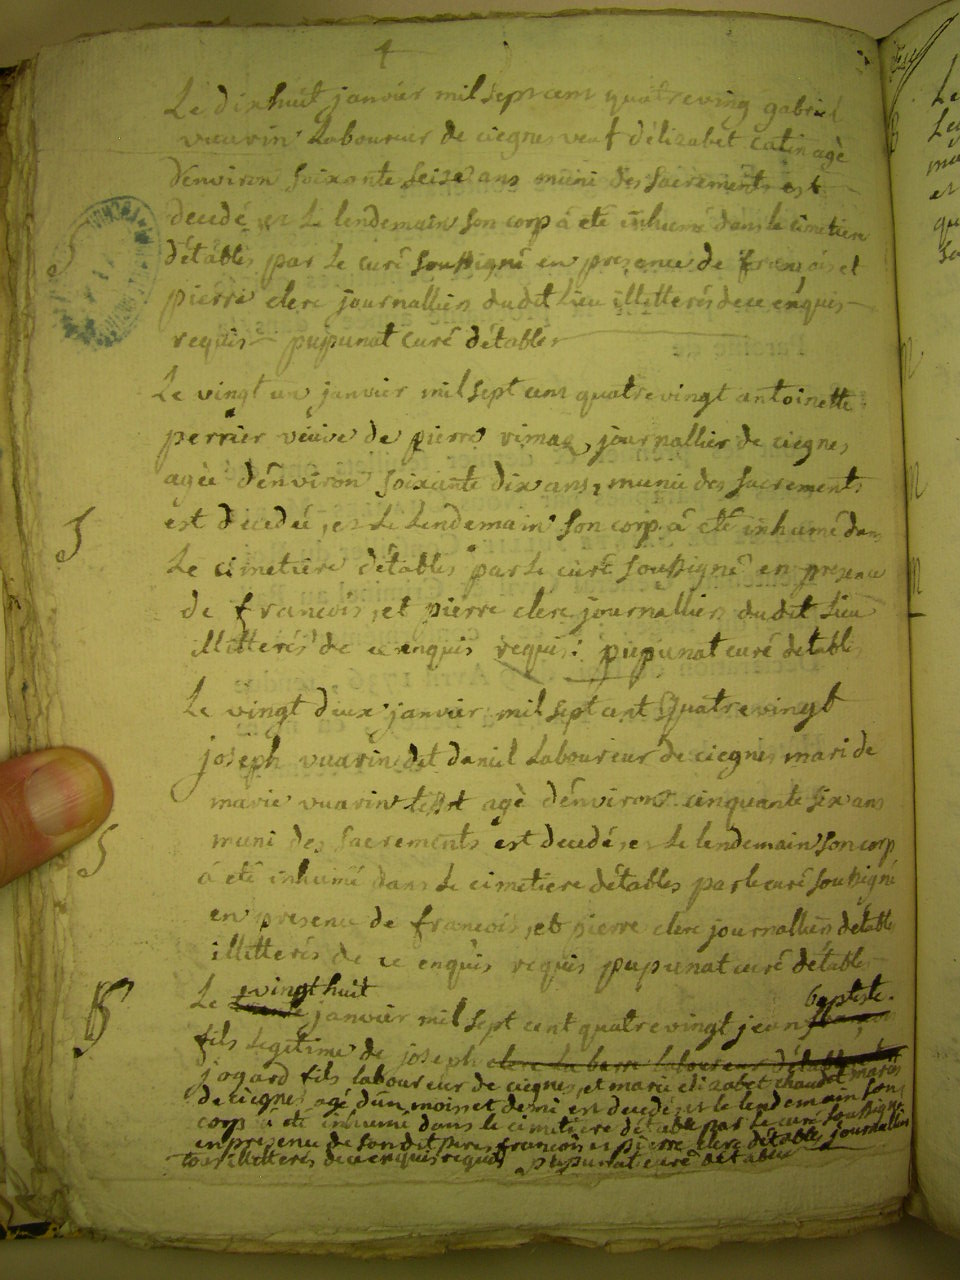 4
Le dixhuit janvier mil sept cent quatreving gabriel
vuarin Laboureur de ciegnes veuf d'élizabet catin agè
d'environ soixante seize ans muni des sacrements est
decedé, et Le lendemain son corp á eté inhumé dans le cimetiere
d'étables par Le curé soussigné en presence de françois et
pierre clerc journalliers dudit Lieu illitterés de ce enquis
requis pupunat curé d'étables
S
Le vingt un janvier mil sept cent quatrevingt antoinette
perrier veuve de pierre vimaq journallier de ciegnes
agée d'environ soixante dix ans, munie des sacrements
est decedée, et Le Lendemain son corp á eté inhumé dans
S
Le cimetiere d'étables par Le curé soussigné en presence
de francois, et pierre clerc journalliers dudit Lieu
illitterés de ce enquis requis: pupunat curé detables
Le vingt deux janvier mil sept cent quatrevingt
joseph vuarin dit daniel Laboureur de ciegnes mari de
marie vuarin agè d'environ cinquante six ans
muni des sacrements est decedé, et Le lendemain son corp
S
á eté inhumé dans Le cimetiere d'étables par le curé soussigné
en presence de francois, et pierre clerc journalliers détables
illitterés de ce enquis requis pupunat curé d'étables
vingt huit
baptiste
B
Le trente janvier mil sept cent quatrevingt jean
fils legitime de joseph clerc La barre laboureur d'étables
jogard fils laboureur de ciegnes, et marie elizabet chaudet mariés
de ciegnes agé d'un mois et demi est decedé et le lendemain son
corp á eté inhumé dans le cimetiere d'étable par Le curé soussigné
en presence de son dit pere, francois et pierre clerc d'étables journalliers
tous illitterés de ce enquis requis pupunat curé d'étables